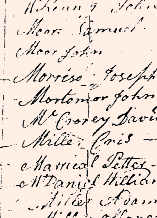 Moor Samuel
Moor John
Morriso Joseph
Mortomor John
Mc Crorey Davi
Miller Cris
Manical Petter
Mc Daniel William
Miller Adam